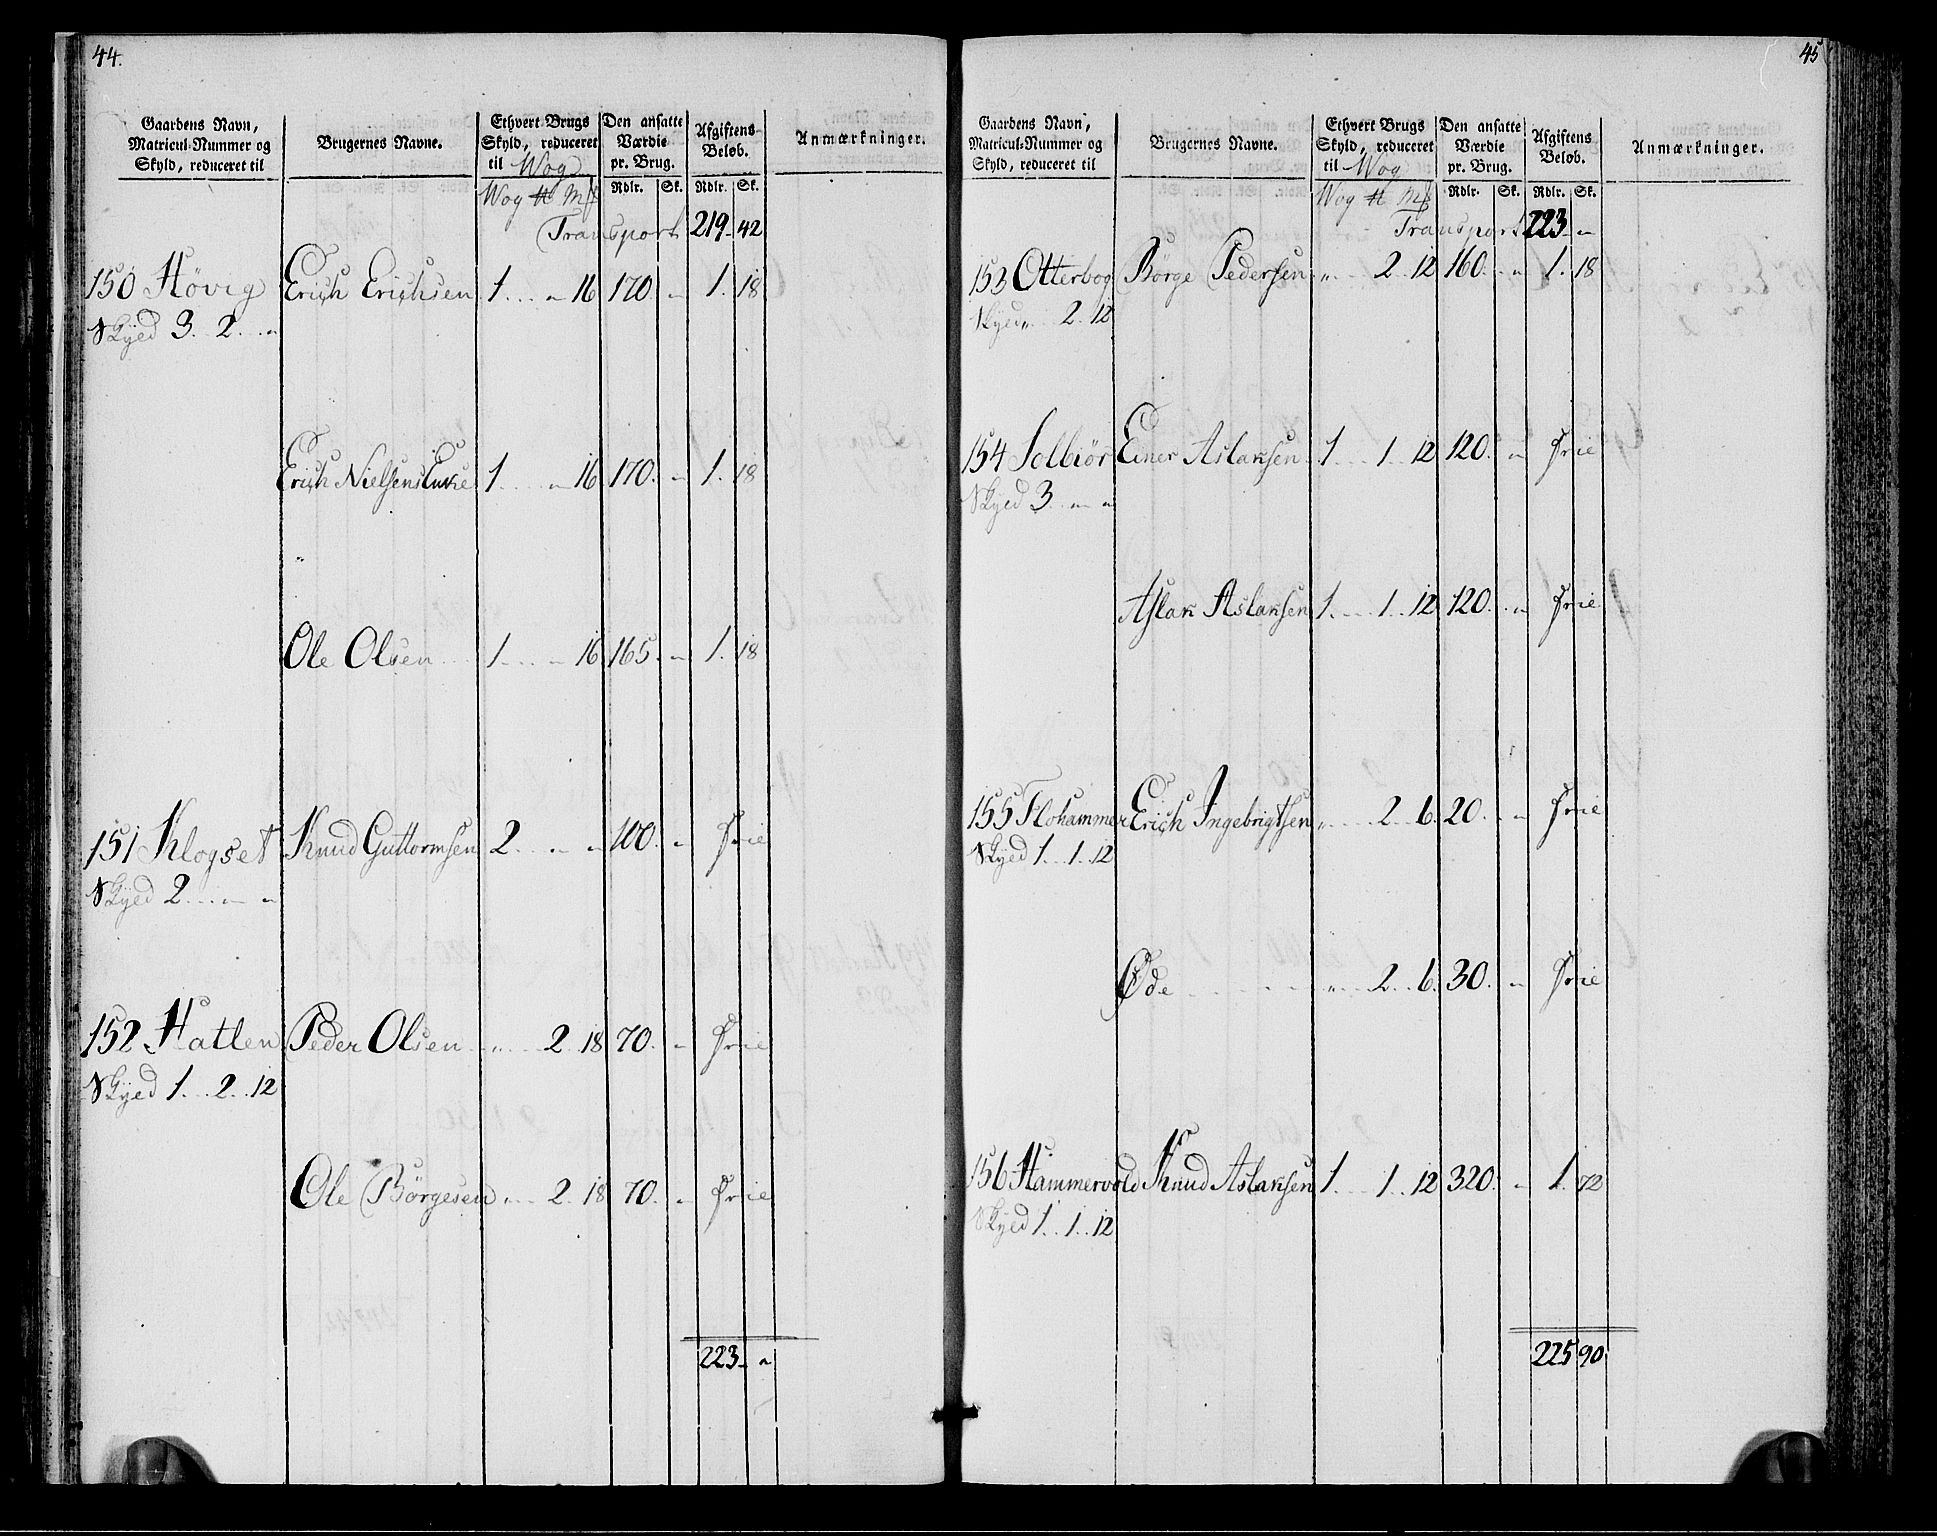 44.
Gaardens Navn, Matricul-Nummer og Skyld, reduceret til | Brugernes Navne. | Ethvert Brugs Skyld, reduceret til Wog | Den ansatte Værdie pr. Brug. | Afgiftens-Beløb. | Anmærkninger.
Wog ℔ Mk | Rdlr. | Sk. | Rdlr. | Sk.
Transport 219 - 42
150 Hövig Erich Erichsen 1 . . „ 16 170 „ 1. 18
Skyed 3. 2. . „
Erich Nielsens Enke 1 . . „ 16 170. „ 1. 18
Ole Olsen 1 . . „ 16 165. „ 1. 18
151 Klogset Knud Guttormsen 2 . . „ „ 100. „ Frie
Skyed 2 . . „ „
152 Hatlen Peder Olsen „ . . 2. 18 70. „ Frie
Skyed 1. . 2. . 12
Ole Börgesen „ . . 2. 18 70. „ Frie
223 - „
45
Gaardens Navn, Matricul-Nummer og Skyld, reduceret til | Brugernes Navne. | Ethvert Brugs Skyld, reduceret til Wog | Den ansatte Værdie pr. Brug. | Afgiftens Beløb. | Anmærkninger.
Wog ℔ Mk | Rdlr. | Sk. | Rdlr. | Sk.
Transport 223 - „
153 Otterbog Börge Pedersen „ . . 2. 12 160. „ 1. 18
Skyed „ . . 2. 12
154 Solbiör Einer Aslaksen 1 . . 1. 12 120. „ Frie
Skyed 3. „ „
Aslak Aslaksen 1. . . 1. . 12 120. „ Frie
155 Flohammer Erich Ingebrigtsen „ . . 2. . 6. 20. „ Frie
Skyed 1. . 1. . 12
Øde „ . . 2. . 6. 30. „ Frie
156 Hammervold Knud Aslaksen 1. . . 1. . 12 320. „ 1. 72
Skyed 1. . 1. . 12
225 90